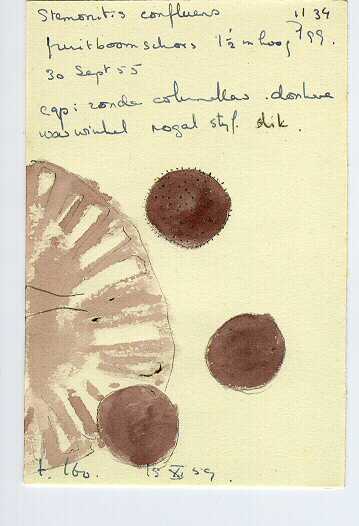 Stemonitis confluens 1134
fruitboomschors 1½ m hoog 799.
30 Sept 55
cap: zonder columella.
nogal styf. dik.
t. 160. 13 XI 59.